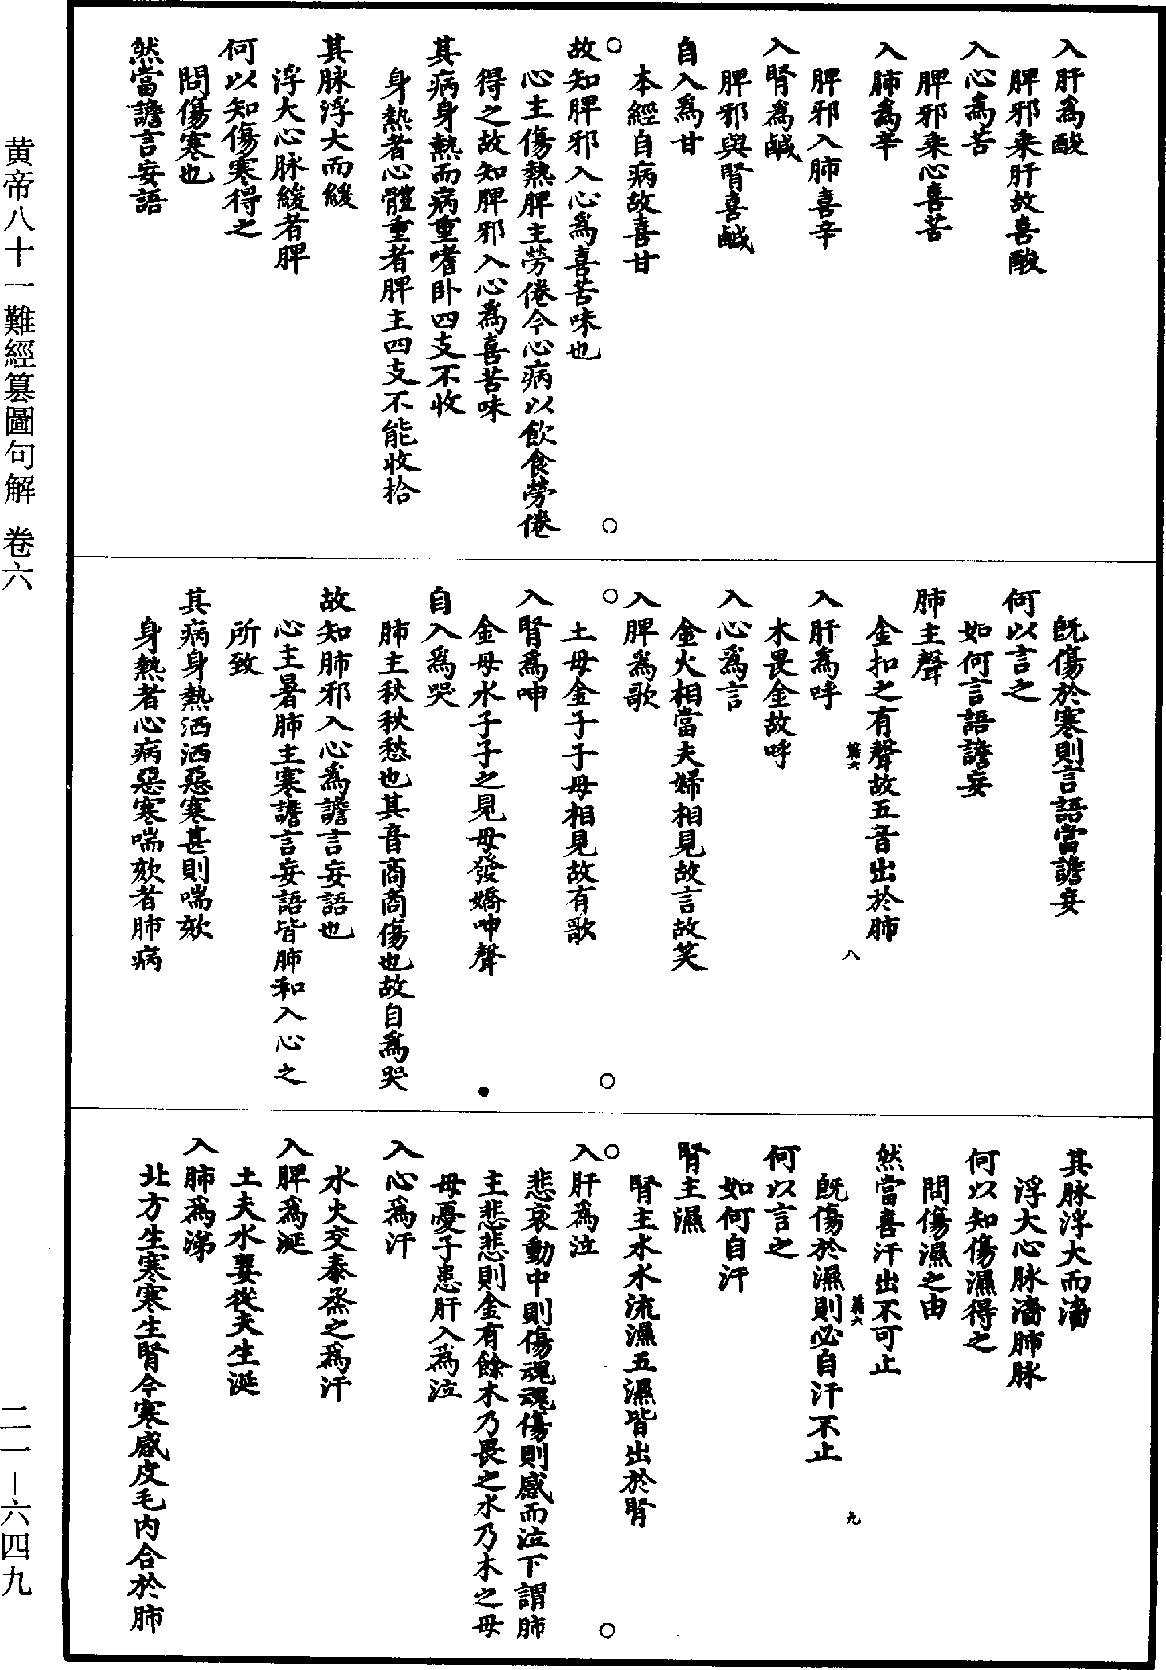 入肝爲酸
脾邪乘肝故喜酸
入心爲苦
脾邪乘心喜苦
入肺爲辛
脾邪入肺喜辛
入腎爲鹹
脾邪與腎喜鹹
自入爲甘
本經自病故喜甘
○
○
故知脾邪入心爲喜苦味也
心主傷熱脾主勞倦今心病以飲食勞倦
得之故知脾邪入心爲喜苦味
其病身熱而病重嗜卧四支不收
身熱者心體重者脾主四支不能收拾
其脉浮大而緩
浮大心脉緩者脾
何以知傷寒得之
問傷寒也
然當譫言妄語
既傷於寒則言語當譫妄
何以言之
如何言語譫妄
肺主聲
金扣之有聲故五音出於肺
八
入肝爲呼
木畏金故呼
入心爲言
金火相當夫婦相見故言故笑
入脾爲歌
○
○
土母金子子母相見故有歌
入腎爲呻
金母水子子之見母發嬌呻聲
自入爲哭
肺主秋秋愁也其音商商傷也故自爲哭
故知肺邪入心爲譫言妄語也
心主暑肺主寒譫言妄語皆肺和入心之
所致
其病身熱洒洒惡寒甚則喘欬
身熱者心病惡寒喘欬者肺病
其脉浮大而濇
浮大心脉濇肺脉
何以知傷濕得之
問傷濕之由
然當喜汗出不可止
九
既傷於濕則必自汗不止
何以言之
如何自汗
腎主濕
腎主水水流濕五濕皆出於腎
○
○
入肝爲泣
悲哀動中則傷魂魂傷則感而泣下謂肺
主悲悲則金有餘木乃畏之水乃木之母
母憂子患肝入爲泣
入心爲汗
水火交泰烝之爲汗
入脾爲涎
土夫水妻從夫生涎
入肺爲涕
北方生寒寒生腎今寒感皮毛内合於肺
黄帝八十一難經篡圖句解 卷六
二一—六四九